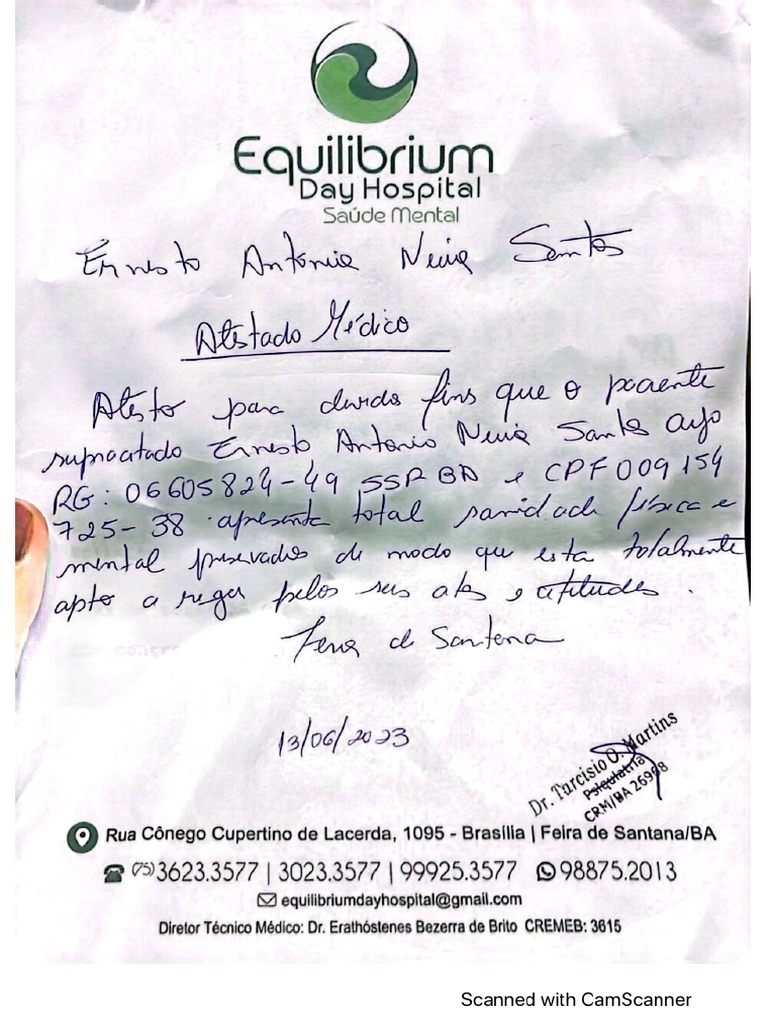 Equilibrium
Day Hospital
Saúde Mental
Ernesto Antonio Neiva Santos
Atestado Médico
Atesto para devidos fins que o paciente
supracitado Ernesto Antonio Neiva Santos cujo
RG: 06605824-49 SSP BA e CPF 009 154
725-38 apresenta total sanidade física e
mental preservados de modo que esta totalmente
apto a reger pelos seus atos e atitudes.
Feira de Santana
13/06/2023
Dr. Tarcisio O. Martins
Psiquiatria
CRM/BA 26998
Rua Cônego Cupertino de Lacerda, 1095 - Brasília | Feira de Santana/BA
(75)3623.3577 | 3023.3577 | 99925.3577 98875.2013
equilibriumdayhospital@gmail.com
Diretor Técnico Médico: Dr. Erathóstenes Bezerra de Brito CREMEB: 3615
Scanned with CamScanner